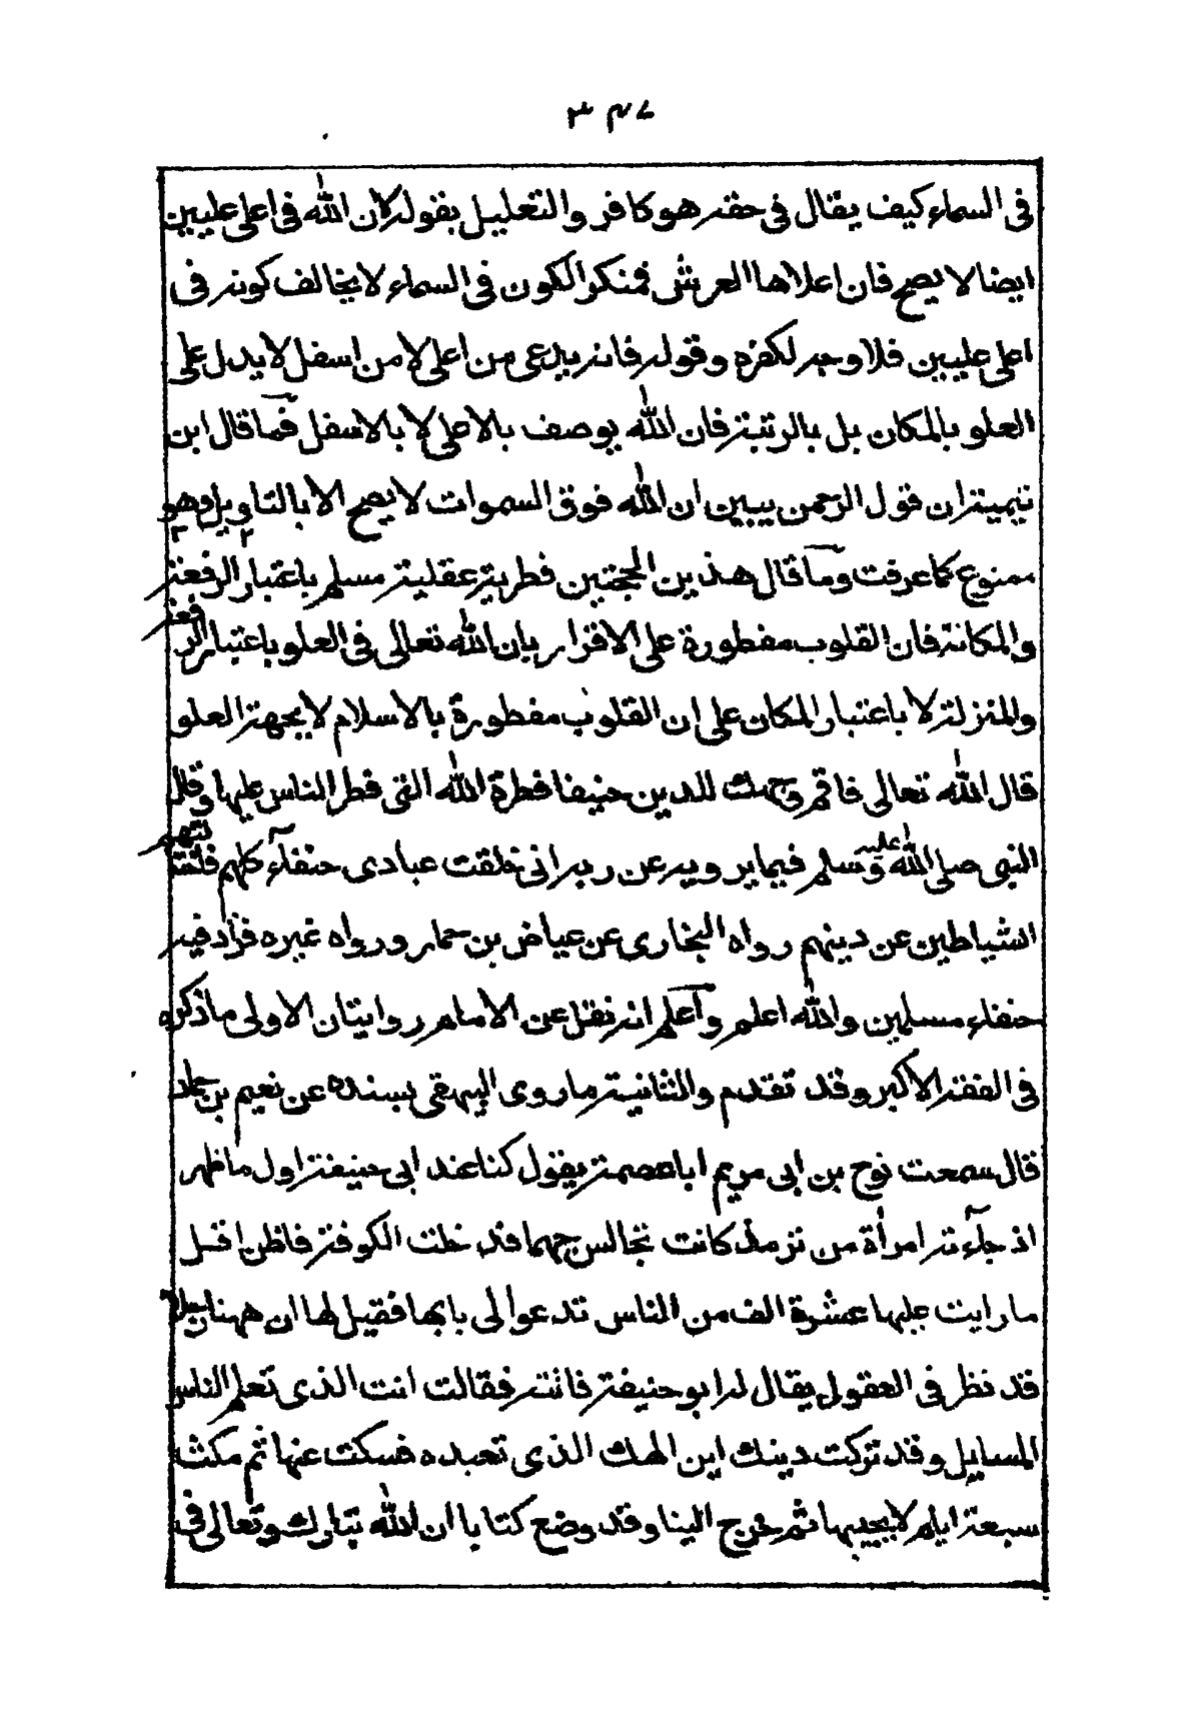 ٣٤٧
فى السماء كيف يقال فى حقه هو كافر والتعليل بقوله لان الله فى اعلى عليين
ايضا لا يصح فان اعلاها العرش فمنكر الكون فى السماء لا يخالف كونه فى
اعلى عليين فلا وجه لكفره وقوله فانه يدعى من اعلى لا من اسفل لا يدل على
العلو بالمكان بل بالرتبة فان الله يوصف بالاعلى لا بالاسفل فما قال ابن
تيمية ان قول الرحمن يبين ان الله فوق السموات لا يصح الا بالتاويل وهو
ممنوع كما عرفت وما قال هذين الحجتين فطرية عقلية مسلم باعتبار الرفعة
والمكانة فان القلوب مفطورة على الاقرار بان الله تعالى فى العلو باعتبار الرفعة
والمنزلة لا باعتبار المكان على ان القلوب مفطورة بالاسلام لا بجهة العلو
قال الله تعالى فاقم وجهك للدين حنيفا فطرة الله التى فطر الناس عليها وقال
النبى صلى الله عليه وسلم فيما يرويه عن ربه انى خلقت عبادى حنفآء كلهم فاتتهم
الشياطين عن دينهم رواه البخارى عن عياض بن حمار ورواه غيره فزاد فيه
حنفاء مسلمين والله اعلم وآعلم انه نقل عن الامام روايتان الاولى ما ذكره
فى الفقه الاكبر وقد تقدم والثانية ما روى البيهقى بسنده عن نعيم بن حماد
قال سمعت نوح بن ابى مريم ابا عصمة يقول كنا عند ابى حنيفة اول ما ظهر
اذ جآءته امرأة من ترمذ كانت تجالس جهما فدخلت الكوفة فاظن اقل
ما رايت عليها عشرة الف من الناس تدعو الى بابها فقيل لها ان ههنا رجلا
قد نظر فى العقول يقال له ابو حنيفة فاتته فقالت انت الذى تعلم الناس
المسايل وقد تركت دينك اين الهك الذى تعبده فسكت عنها ثم مكث
سبعة ايام لا يجيبها ثم خرج الينا وقد وضع كتابا ان الله تبارك وتعالى فى